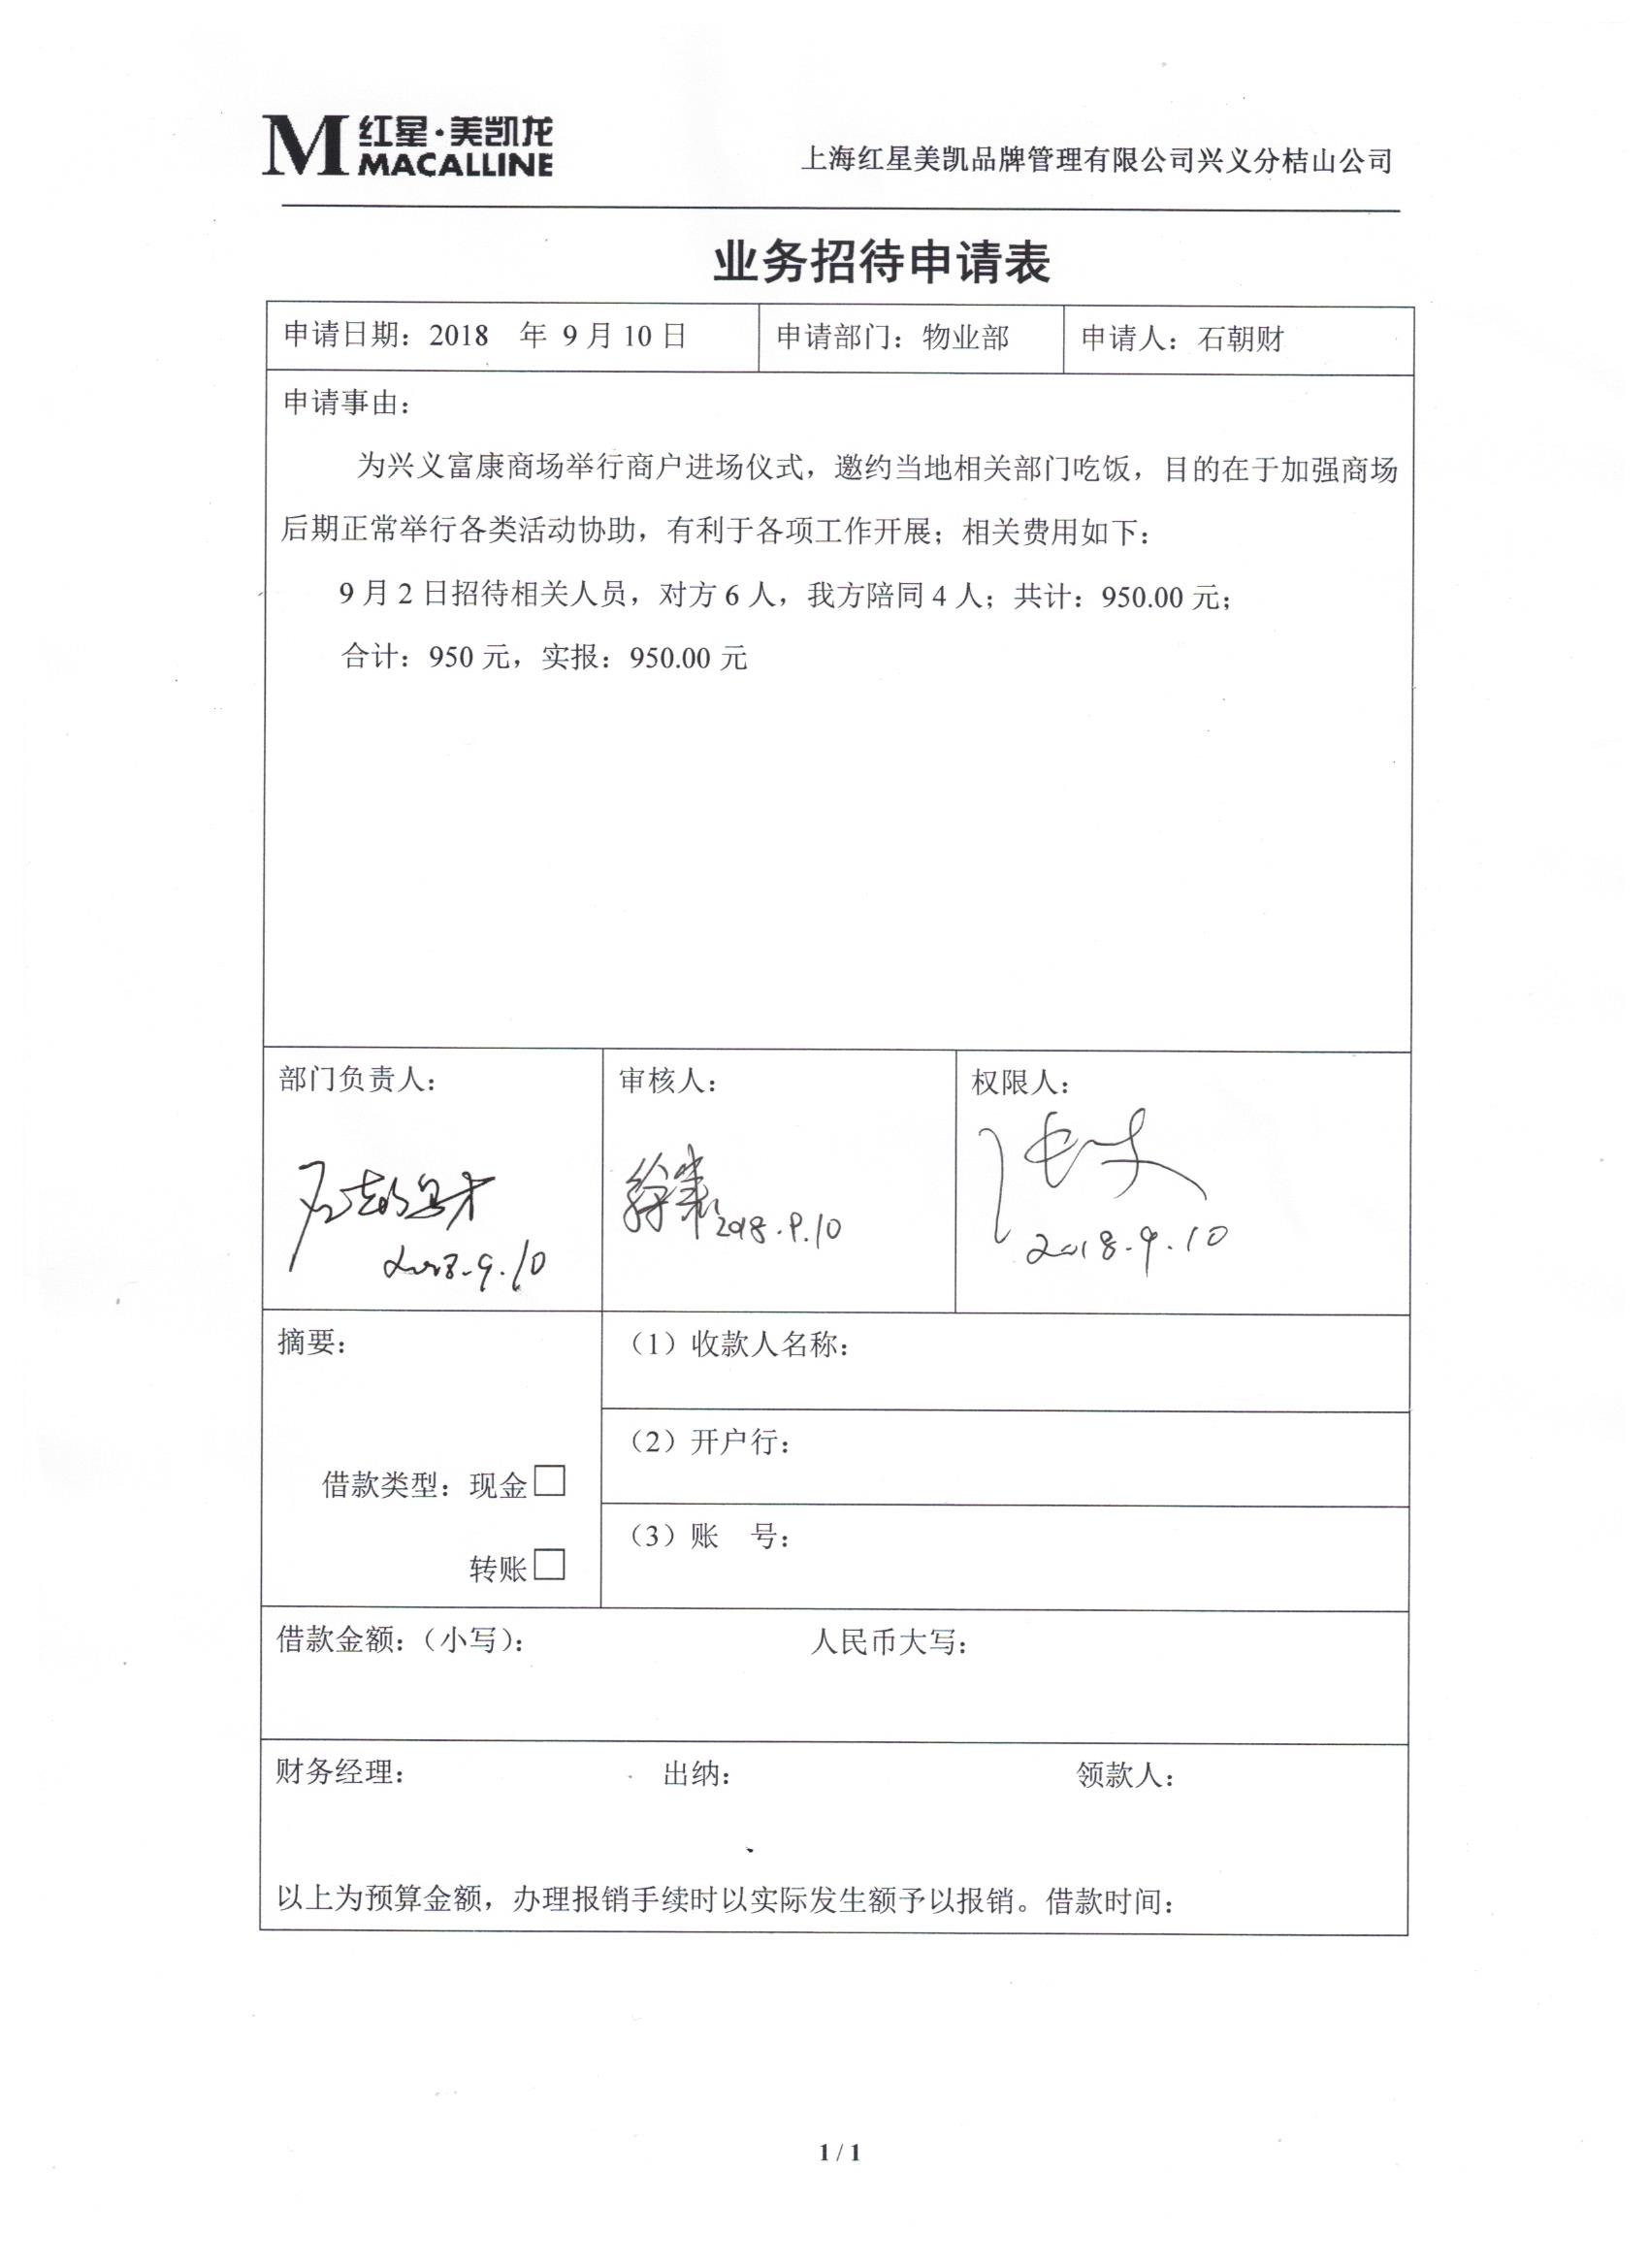 M 红星·美凯龙
MACALLINE
上海红星美凯品牌管理有限公司兴义分桔山公司
业务招待申请表
申请日期：2018 年 9 月 10 日 申请部门：物业部 申请人：石朝财
申请事由：
为兴义富康商场举行商户进场仪式，邀约当地相关部门吃饭，目的在于加强商场
后期正常举行各类活动协助，有利于各项工作开展；相关费用如下：
9 月 2 日招待相关人员，对方 6 人，我方陪同 4 人；共计：950.00 元；
合计：950 元，实报：950.00 元
部门负责人： 审核人： 权限人：
石朝财
2018.9.10
2018.9.10
2018.9.10
摘要：
借款类型：现金□
转账□
（1）收款人名称：
（2）开户行：
（3）账 号：
借款金额：（小写）： 人民币大写：
财务经理： 出纳： 领款人：
以上为预算金额，办理报销手续时以实际发生额予以报销。借款时间：
1 / 1